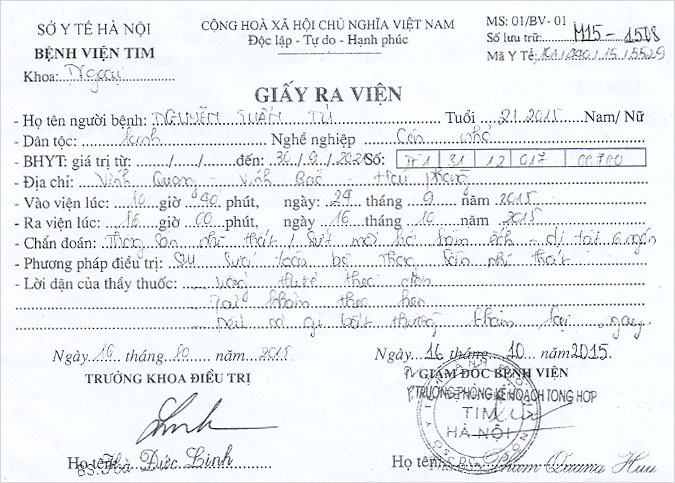 SỞ Y TẾ HÀ NỘI
BỆNH VIỆN TIM
Khoa: Ngoại
CỘNG HOÀ XÃ HỘI CHỦ NGHĨA VIỆT NAM
Độc lập - Tự do - Hạnh phúc
MS: 01/BV- 01
Số lưu trữ: M15 - 1508
Mã Y Tế:
GIẤY RA VIỆN
- Họ tên người bệnh: NGUYỄN TUẤN TÚ Tuổi 2015 Nam/ Nữ
- Dân tộc: kinh Nghề nghiệp Còn nhỏ
- BHYT: giá trị từ: ....../....../...... đến: 30/9/2021 Số: 31 12 017
- Địa chỉ: Vinh Quang - Vĩnh Bảo - Hải Phòng
- Vào viện lúc: 10 giờ phút, ngày: 29 tháng 9 năm 2015
- Ra viện lúc: 16 giờ 00 phút, ngày 16 tháng 10 năm 2015
- Chẩn đoán: Thông sàn nhĩ thất / Sứt môi hở hàm ếch - dị tật
- Phương pháp điều trị: sửa toàn bộ Thông sàn nhĩ thất
- Lời dặn của thầy thuốc: uống thuốc theo đơn
Tái khám theo hẹn
Nếu có gì bất thường khám lại ngay
Ngày 16 tháng 10 năm 2015
TRƯỞNG KHOA ĐIỀU TRỊ
Họ tên:
BS. Hà Đức Linh
Ngày 16 tháng 10 năm 2015.
GIÁM ĐỐC BỆNH VIỆN
TRƯỞNG PHÒNG KẾ HOẠCH TỔNG HỢP
TIM
HÀ NỘI
Họ tên: Phạm Quang Huy